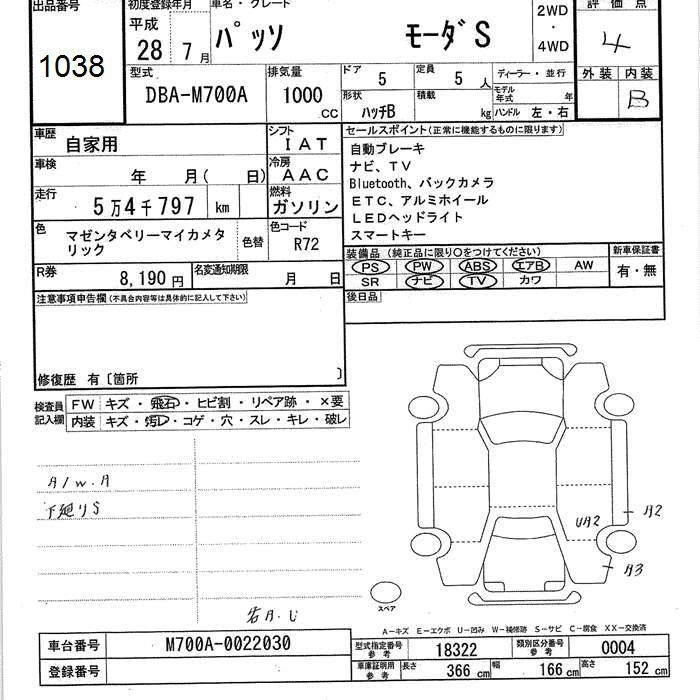 出品番号
1038
初度登録年月
平成
28 年 7 月
車名・グレード
パッソ モーダS
2WD
・
4WD
評価点
4
外装 内装
B
型式
DBA-M700A
排気量
1000 cc
ドア 5
定員 5 人
形状 ハッチB
積載 kg
ディーラー・並行
モデル年式 年
ハンドル 左・右
車歴 自家用
シフト IAT
車検 年 月( 日)
冷房 AAC
走行 5万4千797 km
燃料 ガソリン
色 マゼンタベリーマイカメタリック
色替
色コード R72
R券 8,190 円
名変通知期限 月 日
セールスポイント(正常に機能するものに限ります)
自動ブレーキ
ナビ、TV
Bluetooth、バックカメラ
ETC、アルミホイール
LEDヘッドライト
スマートキー
装備品 (純正品に限り○をつけてください)
PS PW ABS エアB AW
SR ナビ TV カワ
新車保証書
有・無
後日品
注意事項申告欄(不具合内容等は具体的に記入して下さい)
修復歴 有〔箇所 〕
検査員記入欄
FW キズ・飛石・ヒビ割・リペア跡・×要
内装 キズ・汚レ・コゲ・穴・スレ・キレ・破レ
A/W.A
下廻りS
UA2
A2
A3
スペア
A-キズ E-エクボ U-凹み W-補修跡 S-サビ C-腐食 XX-交換済
車台番号 M700A-0022030
登録番号
型式指定番号 参考 18322
類別区分番号 参考 0004
車庫証明用 参考 長さ 366 cm 幅 166 cm 高さ 152 cm